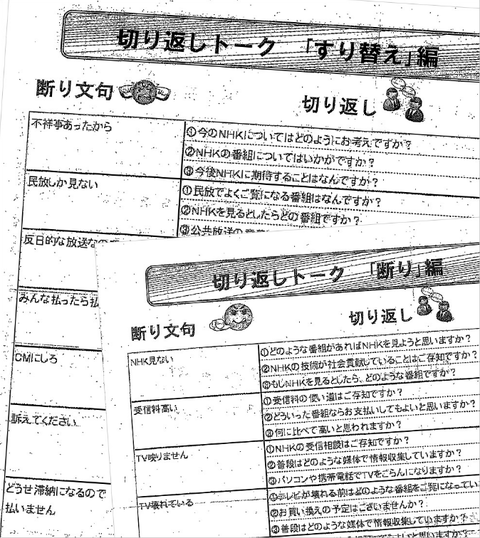 切り返しトーク 「すり替え」編
断り文句
切り返し
不祥事あったから
①今のNHKについてはどのようにお考えですか？
②NHKの番組についてはいかがですか？
③今後NHKに期待することはなんですか？
民放しか見ない
①民放でよくご覧になる番組はなんですか？
②NHKを見るとしたらどの番組ですか？
③公共放送の
反日的な放送
みんな払ったら払
CMにしろ
訴えてください
どうせ滞納になるので
払いません
切り返しトーク 「断り」編
断り文句
切り返し
NHK見ない
①どのような番組があればNHKを見ようと思いますか？
②NHKの技術が社会貢献していることはご存知ですか？
③もしNHKを見るとしたら、どのような番組ですか？
受信料高い
①受信料の使い道はご存知ですか？
②どういった番組ならお支払いしてもよいと思いますか？
③何に比べて高いと思われますか？
TV映りません
①NHKの受信相談はご存知ですか？
②普段はどのような媒体で情報収集していますか？
③パソコンや携帯電話でTVをごらんになりますか？
TV壊れている
①テレビが壊れる前はどのような番組をご覧になってい
②お買い換えの予定はございませんか？
③普段はどのような媒体で情報収集していますか？